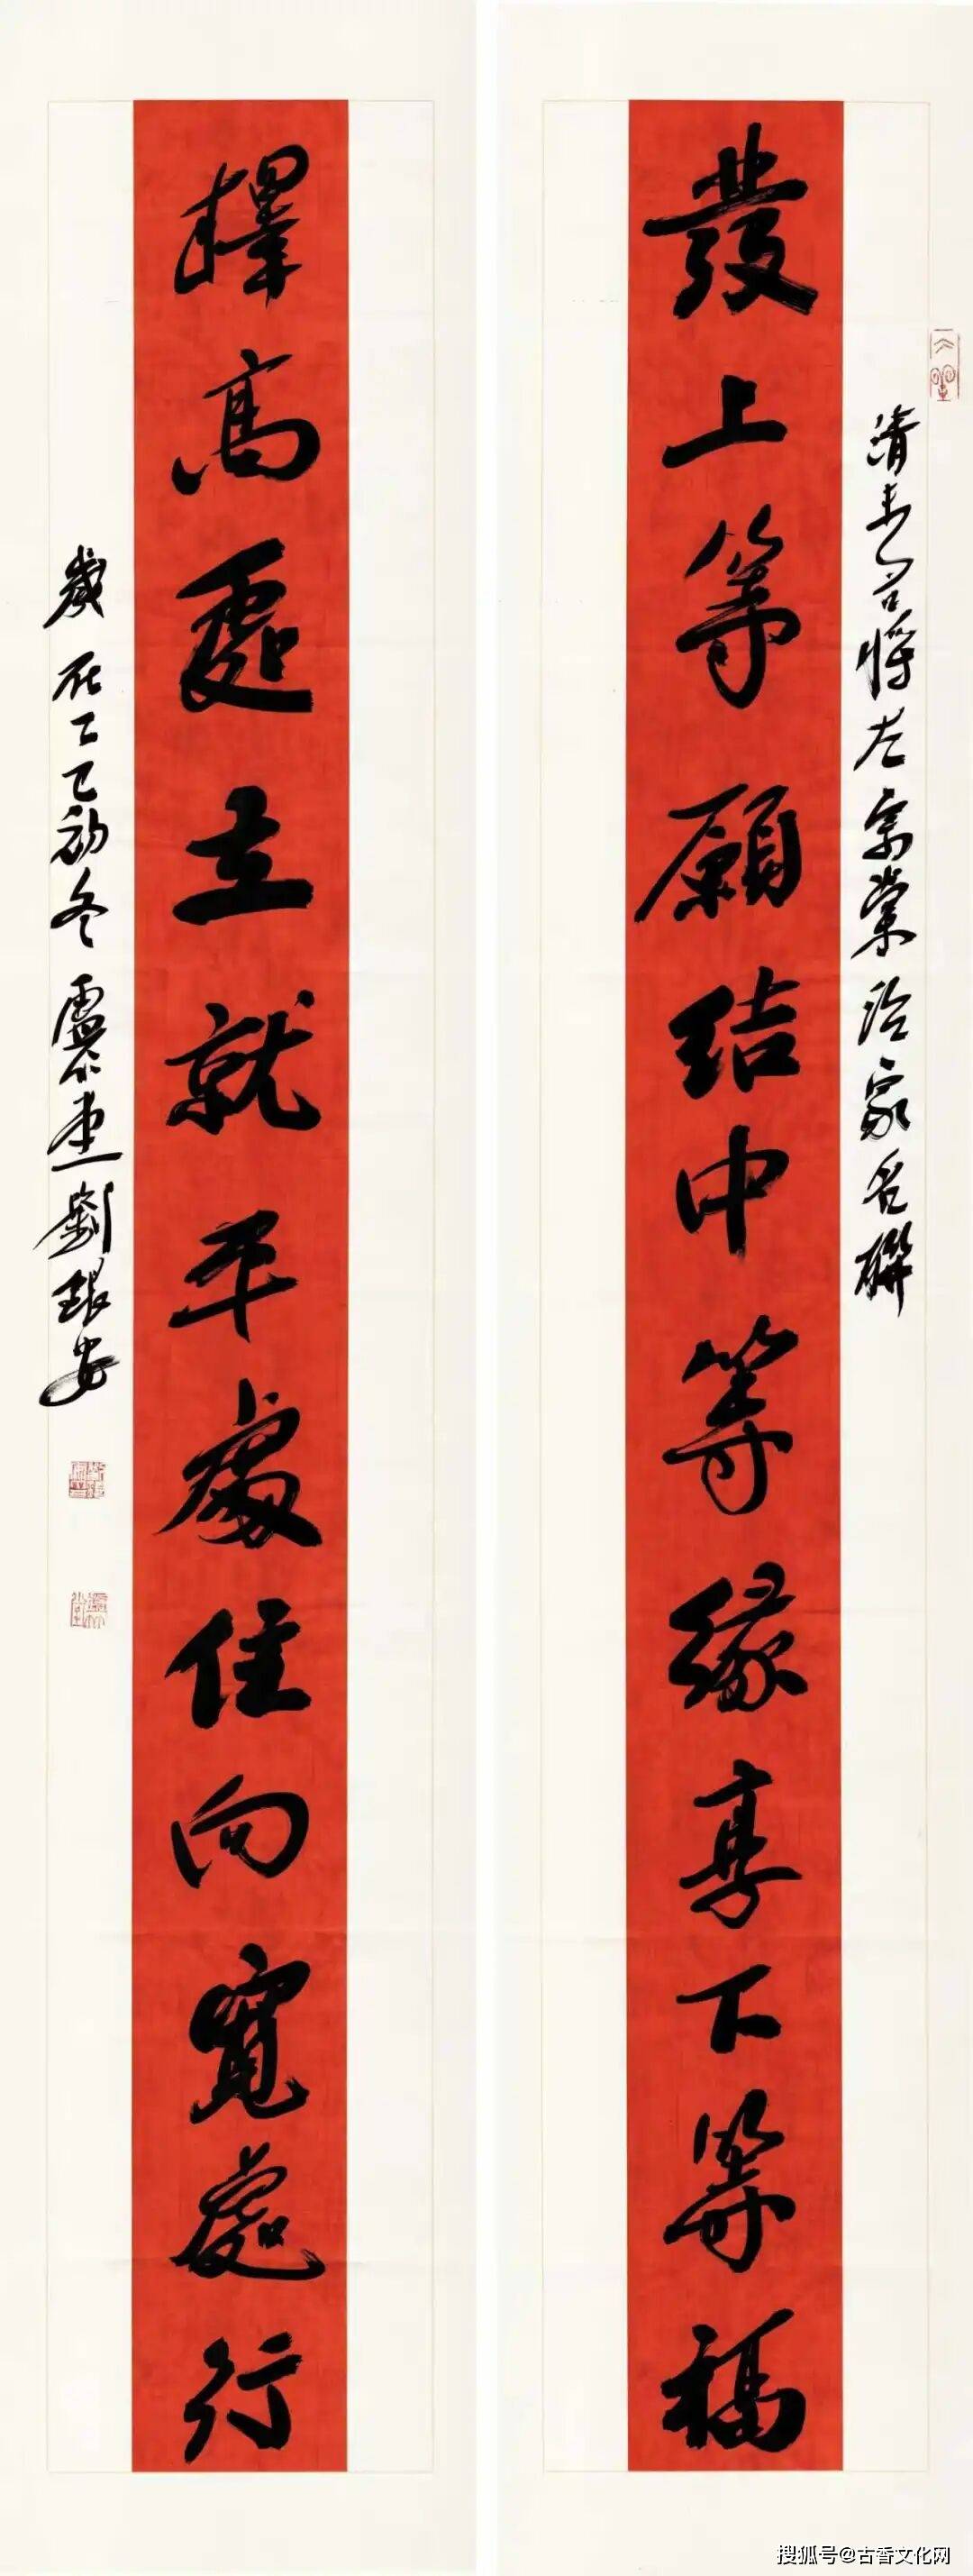 清末名將左宗棠治家名聯
發上等願結中等緣享下等福
擇高處立就平處住向寬處行
歲在乙巳初冬 堂劉安
搜狐号@古香文化网